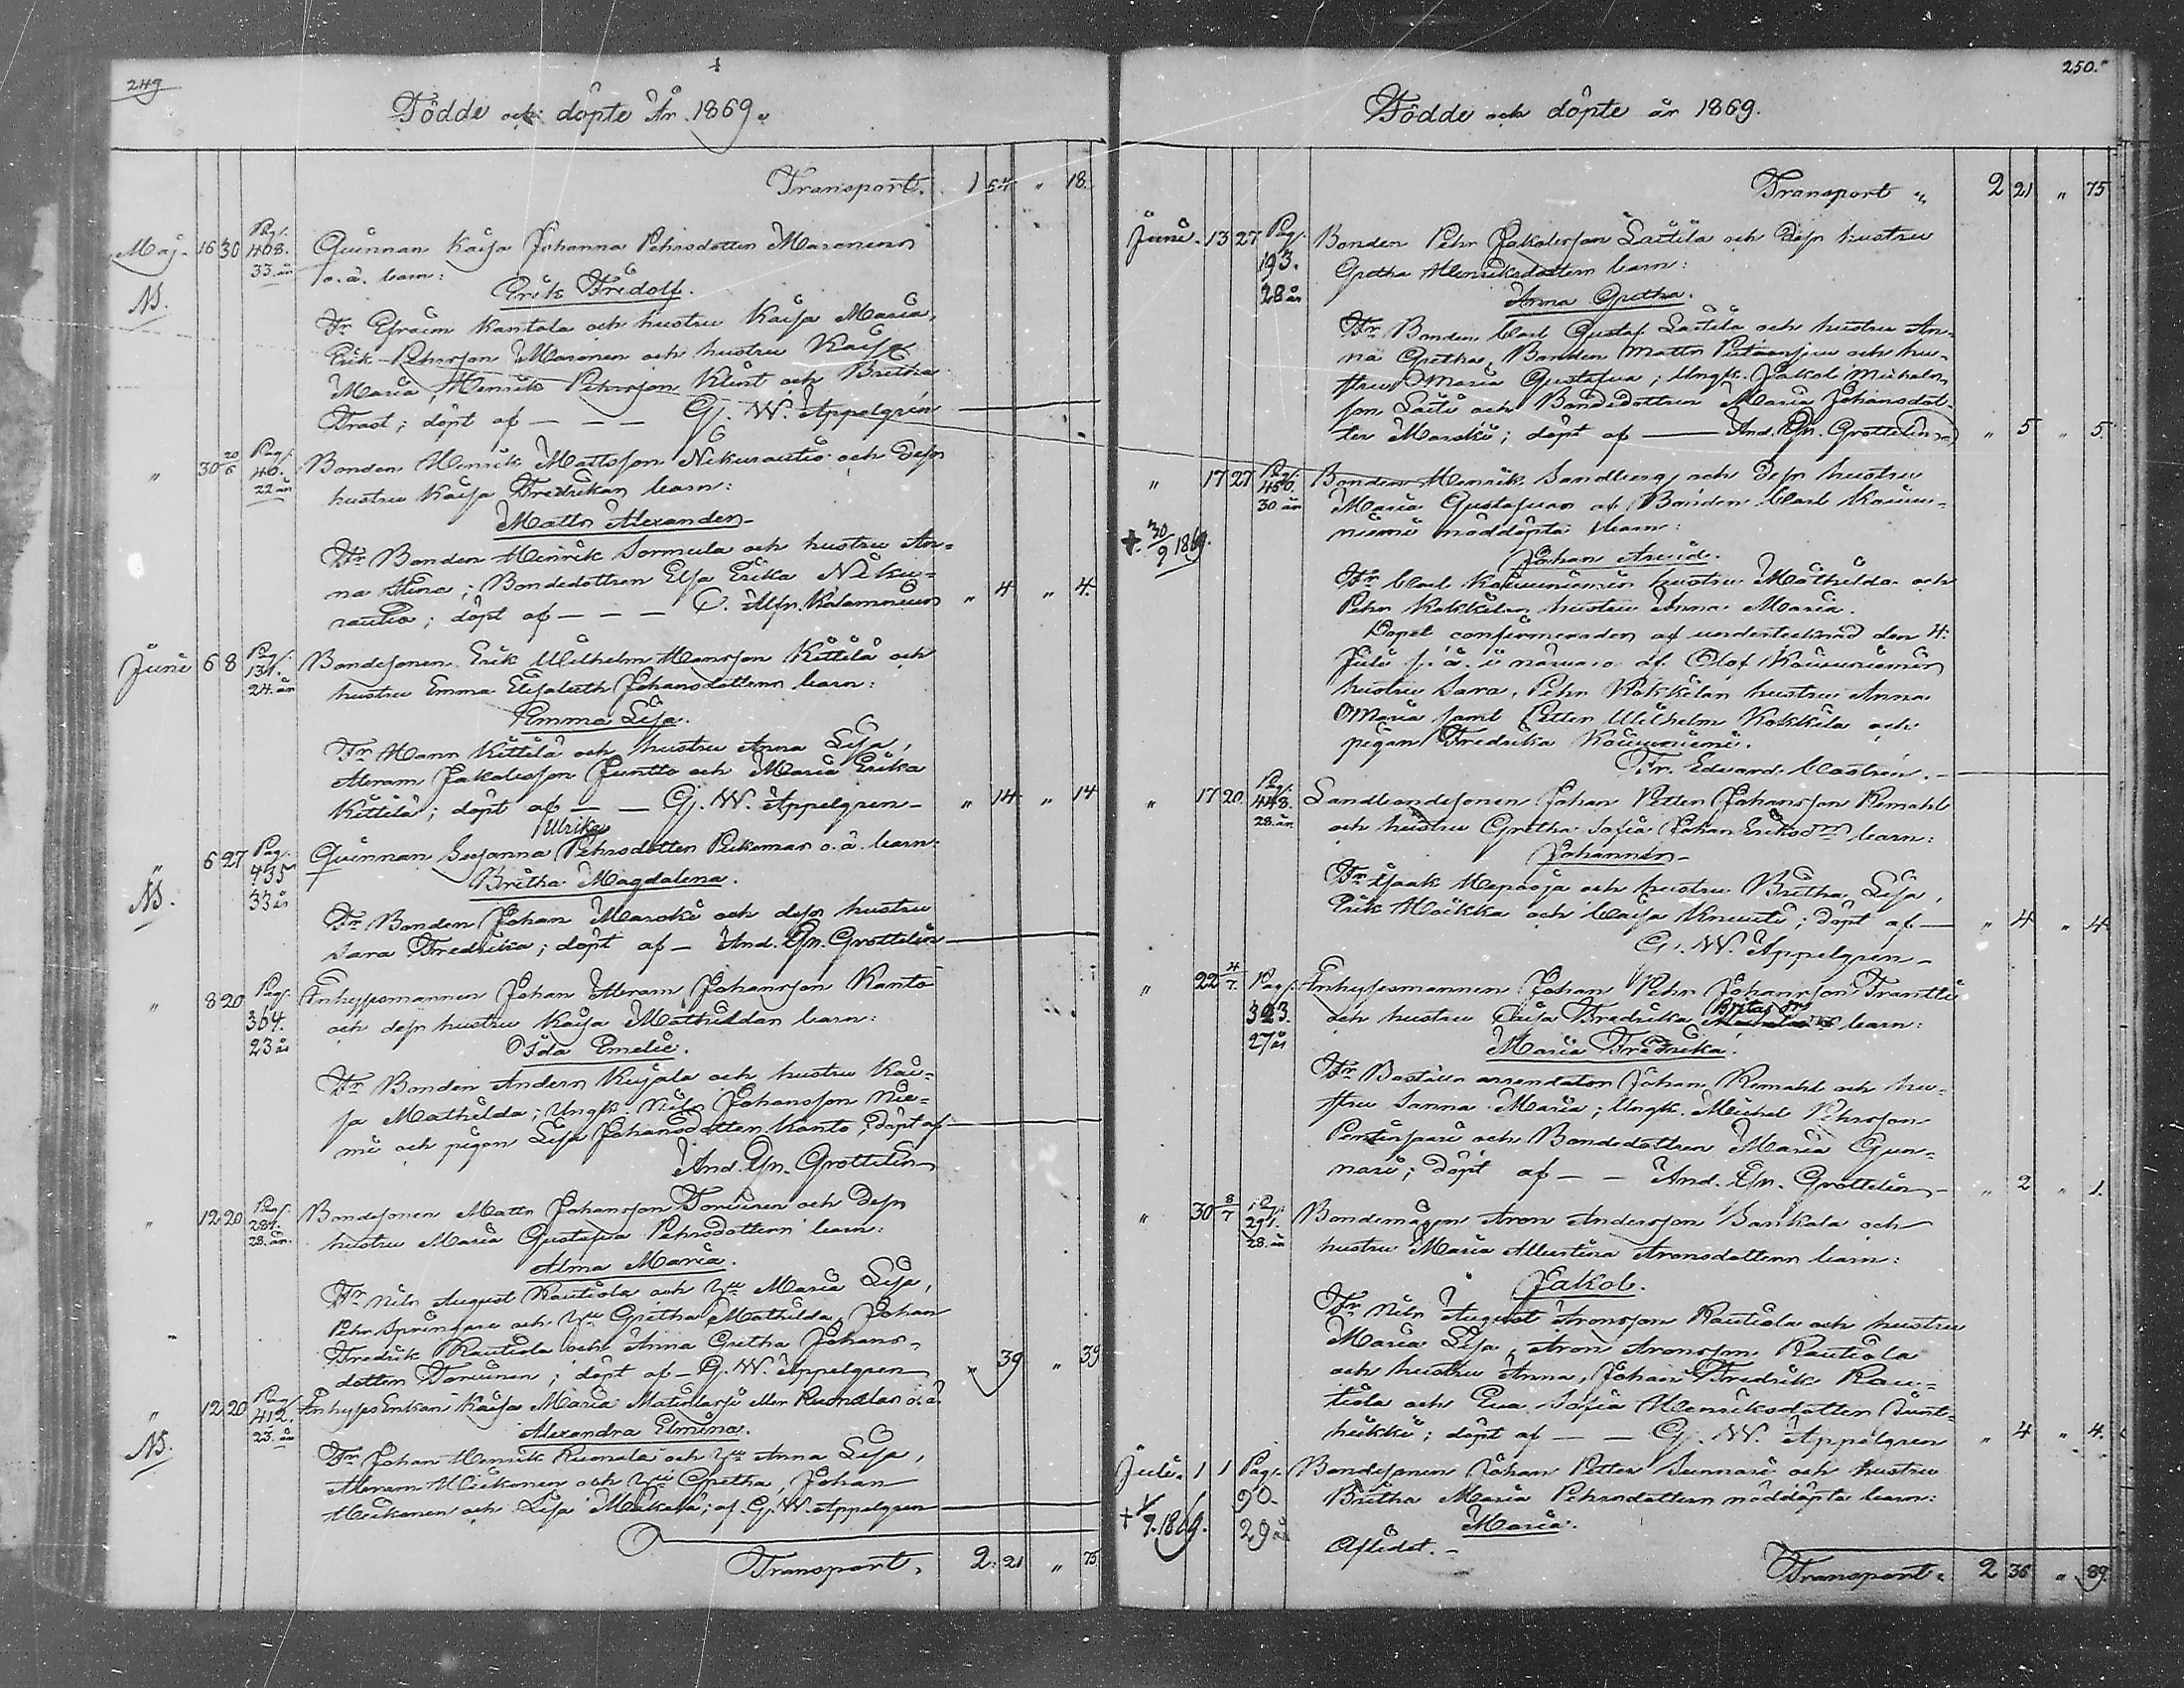 249
Födde och döpte År 1869.
Transport. 1 54 " 18.
Maj. 16 30 Pag. 408. 33 år Qvinnan Kaisa Johanna Pehrsdotter Maronens
N. o. ä. barn:
Erik Fridolf.
Fr Efraim Kantola och hustru Kaisa Maria,
Erik Pehrsson Maronen och hustru Kaisa
Maria, Henrik Pehrsson Klint och Britha
Trast; döpt af — — — G. W. Appelgren
" 30 20/6 Pag. 40. 22 år Bonden Henrik Mattsson Nikurautio och dess
hustru Kaisa Fredrikas barn:
Matts Alexander
Fr Bonden Henrik Sormula och hustru An-
na Stina; Bondedottren Elsa Erika Niku-
rautio; döpt af — — — C. Alfr. Kalamnius " 4 " 4.
Juni 6 8 Pag. 131. 24 år Bondesonen Erik Wilhelm Hansson Kittilä och
hustru Emma Elisabeth Johansdotters barn:
Emma Lisa.
Fr Hans Kittilä och hustru Anna Lisa,
Abram Jakobsson Juntto och Maria Erika
Kittilä; döpt af — — G. W. Appelgren " 14 " 14
Ulrika
" 6 27 Pag. 435 33 år Qvinnan Susanna Pehrsdotter Pukemas o. ä. barn:
N. Britha Magdalena.
Fr Bonden Johan Marski och dess hustru
Sara Fredrika; döpt af — And. Gr. Grottelin
" 8 20 Pag. 364. 23 år Inhysesmannen Johan Abram Johansson Kanto
och dess hustru Kaisa Mathildas barn:
Ida Emelie.
Fr Bonden Anders Kujala och hustru Kai-
sa Mathilda; Ungk. Nils Johansson Nie-
mi och pigan Lisa Johansdotter Kanto; döpt af
And. Gr. Grottelin
" 12 20 Pag. 281. 28 år. Bondesonen Matts Johansson Torvinen och dess
hustru Maria Gustafva Pehrsdotters barn:
Alma Maria.
Fr Nils August Rautiola och Maria Lisa,
Pehr Springare och Gretha Mathilda, Johan
Fredrik Rautiola och Anna Gretha Johans-
dotter Torvinen; döpt af — G. W. Appelgren " 39 " 39
" 12 20 Pag. 412. 23 år Inhyses Enkan Kaisa Maria eller Ruonalas o. ä.
N. Alexandra Elmina.
Fr Johan Henrik Ruonala och Anna Lisa,
Abram Heikonen och Gretha, Johan
Heikonen och Lisa; af G. W. Appelgren
Transport. 2 21 " 75
250.
Födde och döpte år 1869.
Transport " 2 21 " 75
Juni. 13 27 Pag. 193. 28 år Bonden Pehr Jakobsson Laitila och dess hustru
Gretha Henriksdotters barn:
Anna Gretha.
Fr Bonden Carl Gustaf Laitila och hustru An-
na Gretha, Bonden Matts och hu-
stru Maria Gustafva; Ungk. Jakob Michels-
son Laiti och Bondedottren Maria Johansdot-
ter Marski; döpt af — And. Gr. Grottelin " 5 " 5.
" 17 27 Pag. 450. 30 år Bonden Henrik Sandberg och dess hustru
Maria Gustafvas af Bonden Carl Kauvu-
+ 30/9 1869. niemi nöddöpta barn:
Johan Arvid.
Fr Carl Kauvuniemis hustru Mathilda och
Pehr Kokkilas hustru Anna Maria.
Dopet confirmerades af undertecknad den 4:
Juli s. å. i närvaro af Olof Kauvuniemis
hustru Sara, Pehr Kokkilas hustru Anna
Maria samt Petter Wilhelm Kokkila och
pigan Fredrika Kauvuniemi.
Fr. Edvard Castrén.
" 17 20 Pag. 448. 28 år Landbondesonen Johan Petter Johansson Remahl
och hustru Gretha Sofia Johan Eriksdrs barn:
Johannes
Fr Isaak Hepooja och hustru Britha Lisa,
Erik Kaikka och Caisa Knuuti; döpt af — " 4 " 4
G. W. Appelgren
" 22 4/7. Pag. 323. 27 år Inhysesmannen Johan Pehr Johansson Frantti
och hustru Caisa Fredrika Britas dr barn:
Maria Fredrika.
Fr Boställs arrendatorn Johan Remahl och hu-
stru Sanna Maria; Ungk. Michel Pehrsson
Pentinpaari och Bondedottren Maria Gun-
nari; döpt af — — And. Gr. Grottelin " 2 " 1.
" 30 8/7 Pag. 291. 28 år Bondemågen Aron Andersson Sankala och
hustru Maria Albertina Aronsdotters barn:
Jakob.
Fr Nils August Aronsson Rautiola och hustru
Maria Lisa, Aron Aronsson Rautiola
och hustru Anna, Johan Fredrik Rau-
tiola och Eva Sofia Henriksdotter Junt-
heikki; döpt af — — G. W. Appelgren " 4 " 4.
Juli. 1 1 Pag. 90. 29 år Bondesonen Johan Petter Sunnari och hustru
+ 1/7. 1869. Britha Maria Pehrsdotters nöddöpta barn:
Maria.
Aflidet.
Transport. 2 36 " 89.